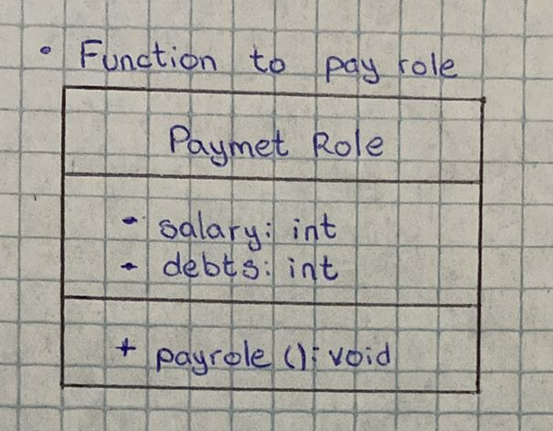 • Function to pay role
Paymet Role
- salary: int
- debts: int
+ payrole (): void